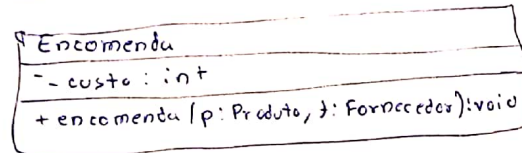 Encomenda
- custo : int
+ encomenda (p: Produto, f: Fornecedor): void